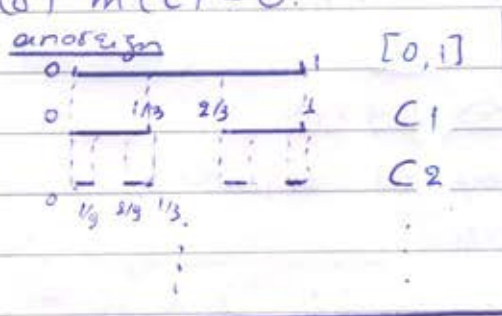 (δ) m(C) = 0.
απόδειξη
0 1 [0,1]
0 1/3 2/3 1 C1
C2
0 1/9 2/9 1/3